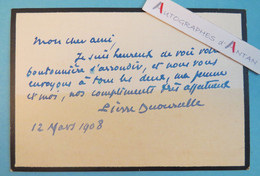 Mon cher ami,
Je suis heureux de voir votre
boutonnière s'arrondir, et nous vous
envoyons à tous les deux, ma femme
et moi, nos compliments très affectueux
Pierre Decourcelle
12 Mars 1908